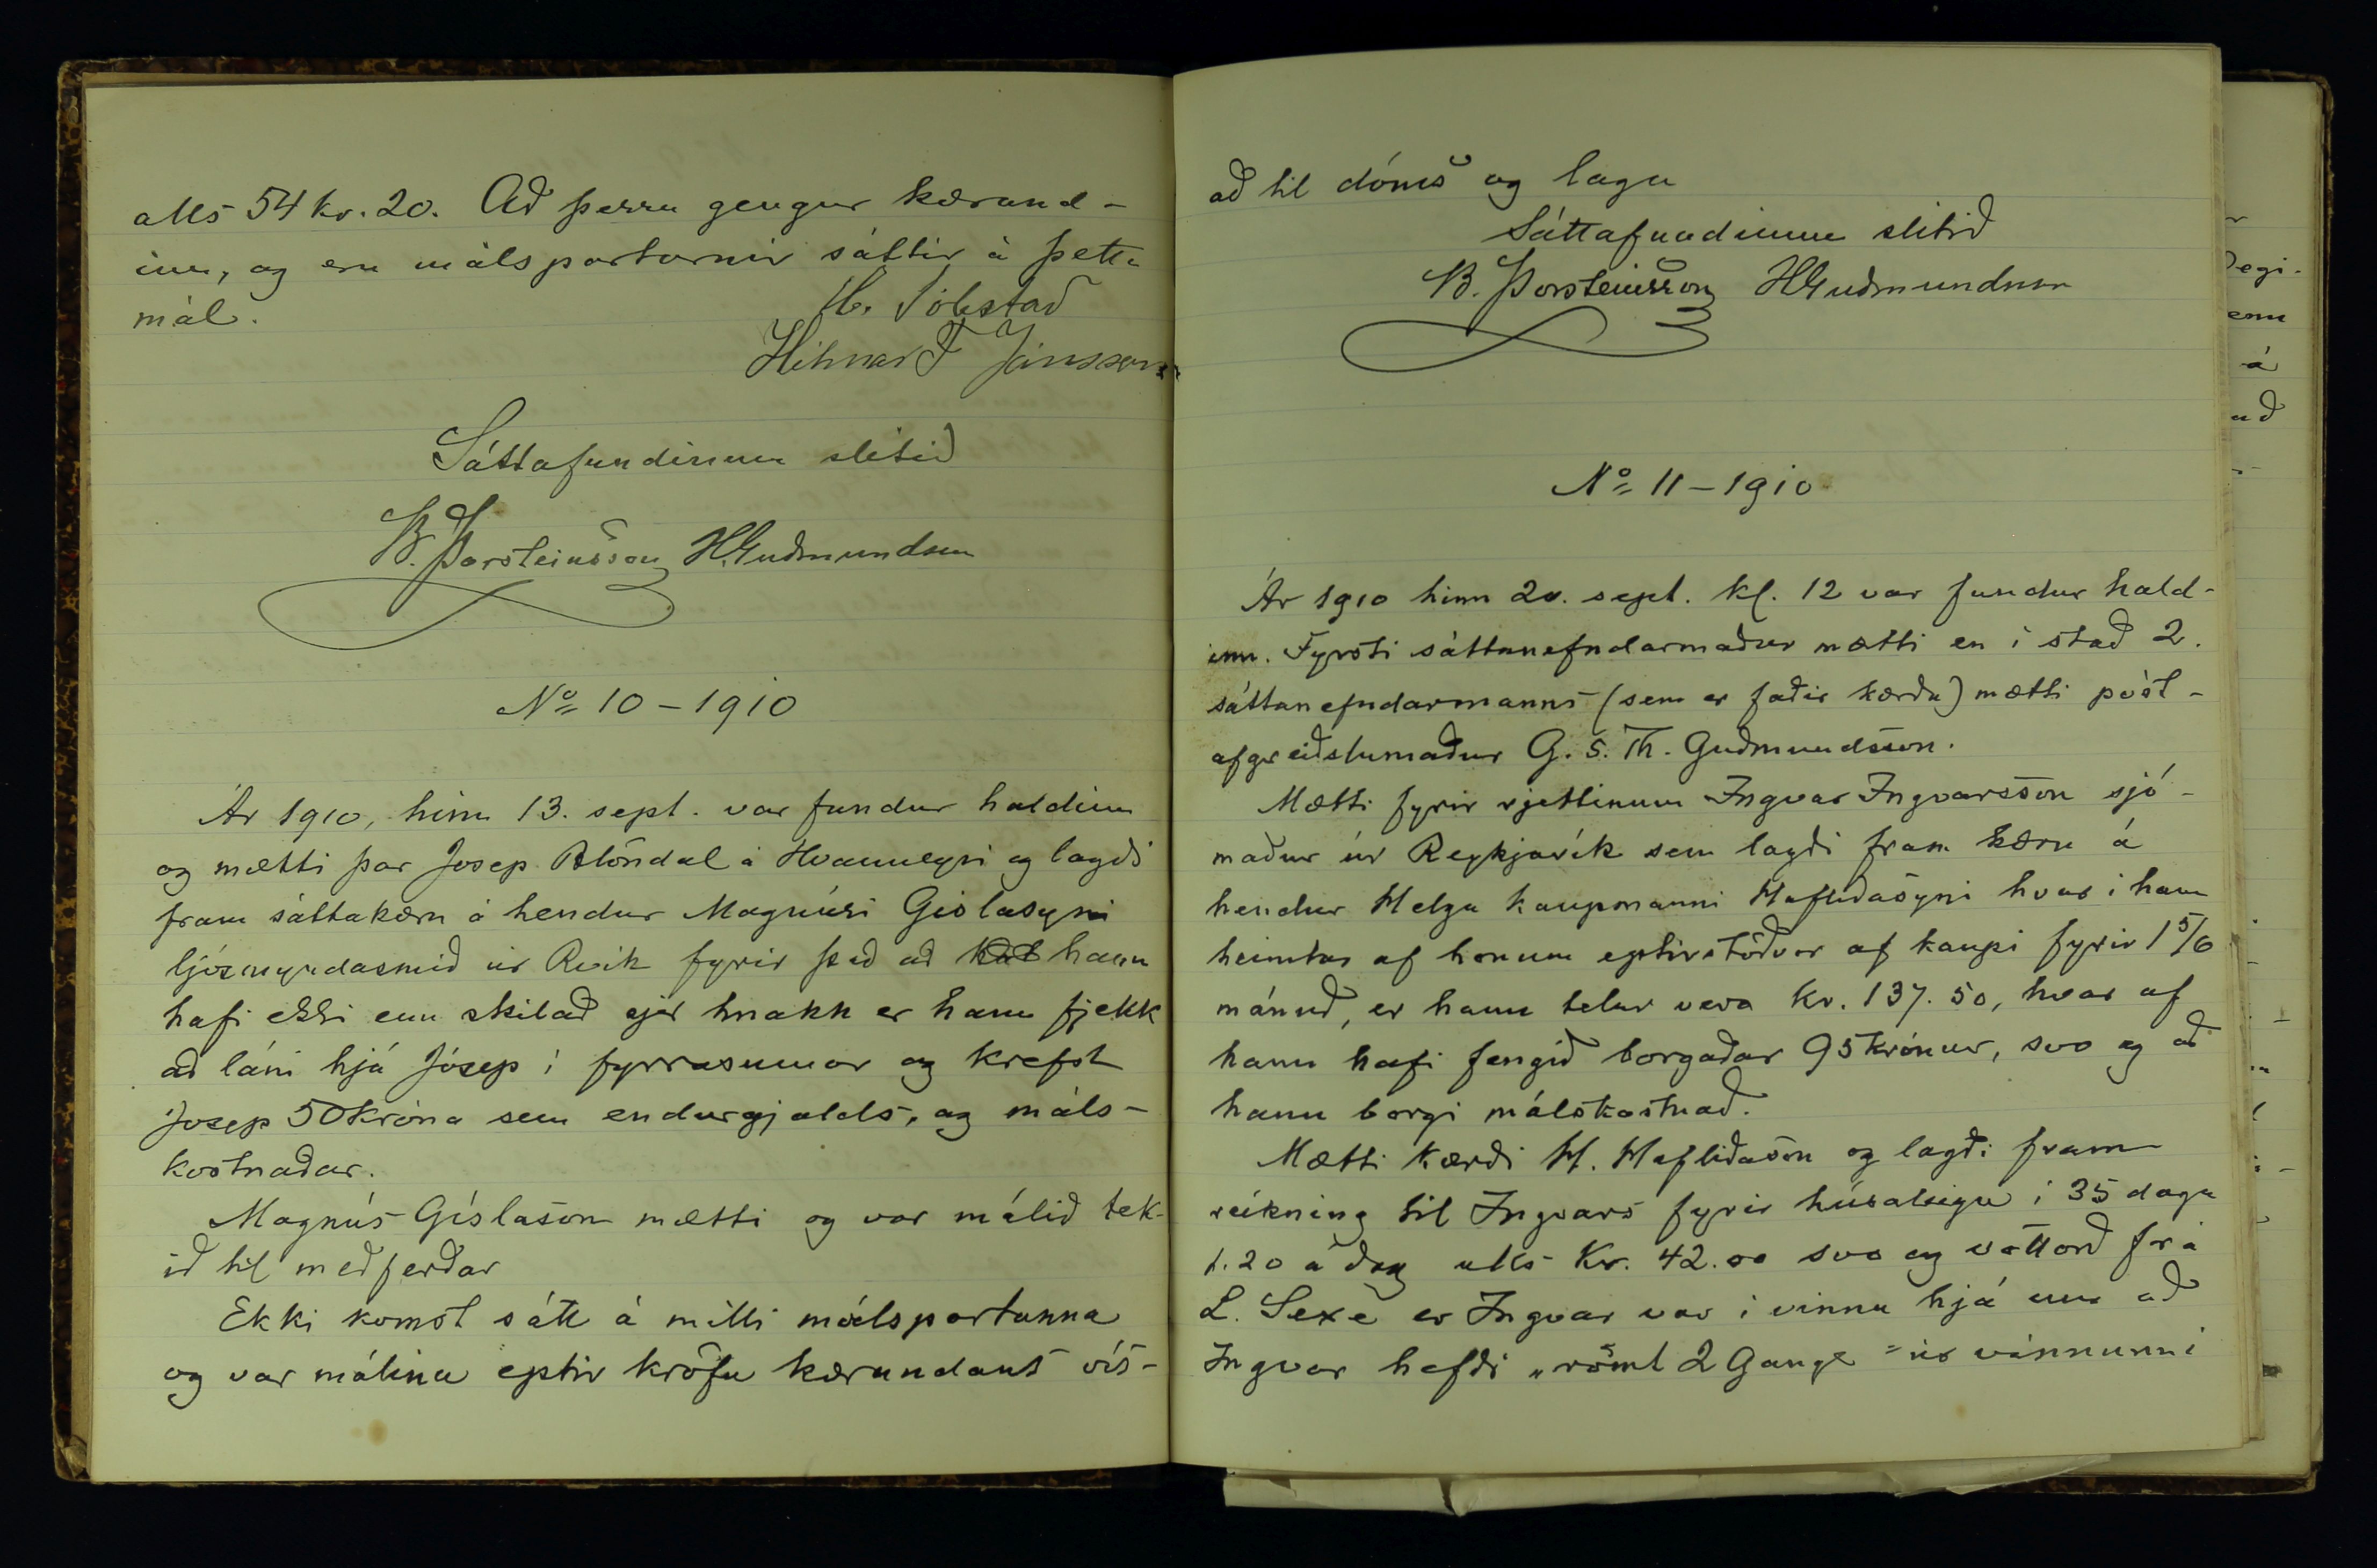 alls 54 kr. 20. Að þessu gengur kærand-
inn, og eru málspartarnir sáttir á þetta
mál.
H. Söbstad
Hilmar F Jónsson
Sáttafundinum slitið
B. Þorsteinsson HGuðmundsson
No 10 - 1910
Ár 1910, hinn 13. sept. var fundur haldinn
og mætti þar Jósep Blöndal á Hvanneyri og lagði
fram sáttakæru á hendur Magnúsi Gislasyni
ljósmyndasmið úr Rvík fyrir það að hann
hafi ekki enn skilað sjer hnakk er hann fjekk
að láni hjá Jósep í fyrrasumar og krefst
Jósep 50 króna sem endurgjalds, og máls-
kostnaðar.
Magnús Gíslason mætti og var málið tek-
ið til meðferðar
Ekki komst sátt á milli málspartanna
og var málinu eptir kröfu kærandans vís-
að til dóms og laga
Sáttafundinum slitið
B. Þorsteinsson HGuðmundsson
No 11 - 1910
Ár 1910 hinn 20. sept. kl. 12 var fundur hald-
inn. Fyrsti sáttanefndarmaður mætti en í stað 2.
sáttanefndarmanns (sem er faðir kærða) mætti póst-
afgreiðslumaður G. S. Th. Guðmundsson.
Mætti fyrir rjettinum Ingvar Ingvarsson sjó-
maður úr Reykjavík sem lagði fram kæru á
hendur Helga kaupmanni Hafliðasyni hvar í hann
heimtar af honum eptirstöðvar af kaupi fyrir 1 5/6
mánuð, er hann telur vera Kr. 137.50, hvar af
hann hafi fengið borgaðar 95 krónur, svo og að
hann borgi málskostnað.
Mætti kærði H. Hafliðason og lagði fram
reikning til Ingvars fyrir húsaleigu í 35 daga
1.20 á dag alls Kr. 42.00 svo og vottorð frá
L. Sexe er Ingvar var í vinnu hjá um að
Ingvar hefði „römt 2 Gange" úr vinnunni